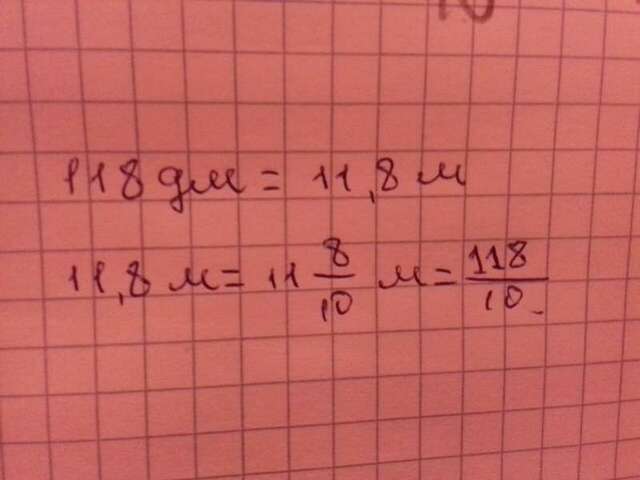 118 дм = 11,8 м
11,8 м = 11 8/10 м = 118/10